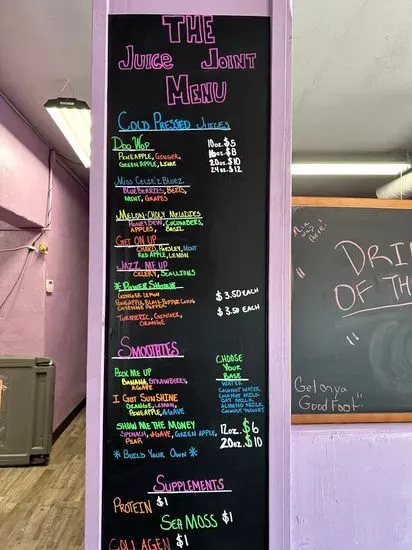 THE
JUICE JOINT
MENU
COLD PRESSED JUICES
DOO WOP
PINEAPPLE, GINGER,
GREEN APPLE, LIME
10oz. $5
16oz. $8
20oz. $10
24oz. $12
MISS CELIE'Z BLUEZ
BLUEBERRIES, BEETS,
MINT, GRAPES
MELON-CHOLY MELODIES
HONEYDEW, CUCUMBERS,
APPLES, BASIL
GET ON UP
CHARD, PARSLEY, MINT
RED APPLE, LEMON
JAZZ ME UP
CELERY, SCALLIONS
*POWER SHOTS
GINGER LEMON
PINEAPPLE, BLACK PEPPER CORN
CAYENNE PEPPER
$3.50 EACH
TURMERIC, GINGER,
ORANGE
$3.50 EACH
SMOOTHIES
PICK ME UP
BANANA, STRAWBERRY,
AGAVE
I GOT SUNSHINE
ORANGE, LEMON,
PINEAPPLE, AGAVE
SHOW ME THE MONEY
SPINACH, AGAVE, GREEN APPLE,
PEAR
* BUILD YOUR OWN *
CHOOSE
YOUR
BASE
WATER
COCONUT WATER
COCONUT MILK
OAT MILK
ALMOND MILK
COCONUT YOGURT
12oz. $6
20oz. $10
SUPPLEMENTS
PROTEIN $1
SEA MOSS $1
COLLAGEN $1
here!
DRI
OF TH
Get on ya
Good Foot"